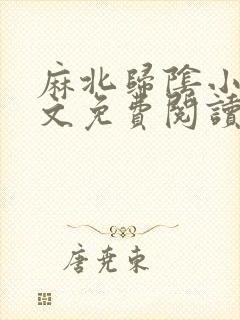 麻北歸陰小
文免費閱讀
唐堯東